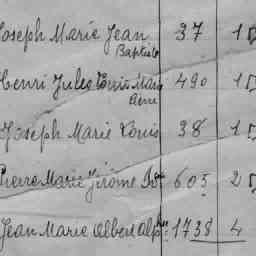 Joseph Marie Jean 37 1
Baptiste
Henri Jules Louis Marie 490 1
Aimé
Joseph Marie Louis 38 1
Pierre Marie Jérôme 605 2
Jean Marie Albert Alph 1738 4